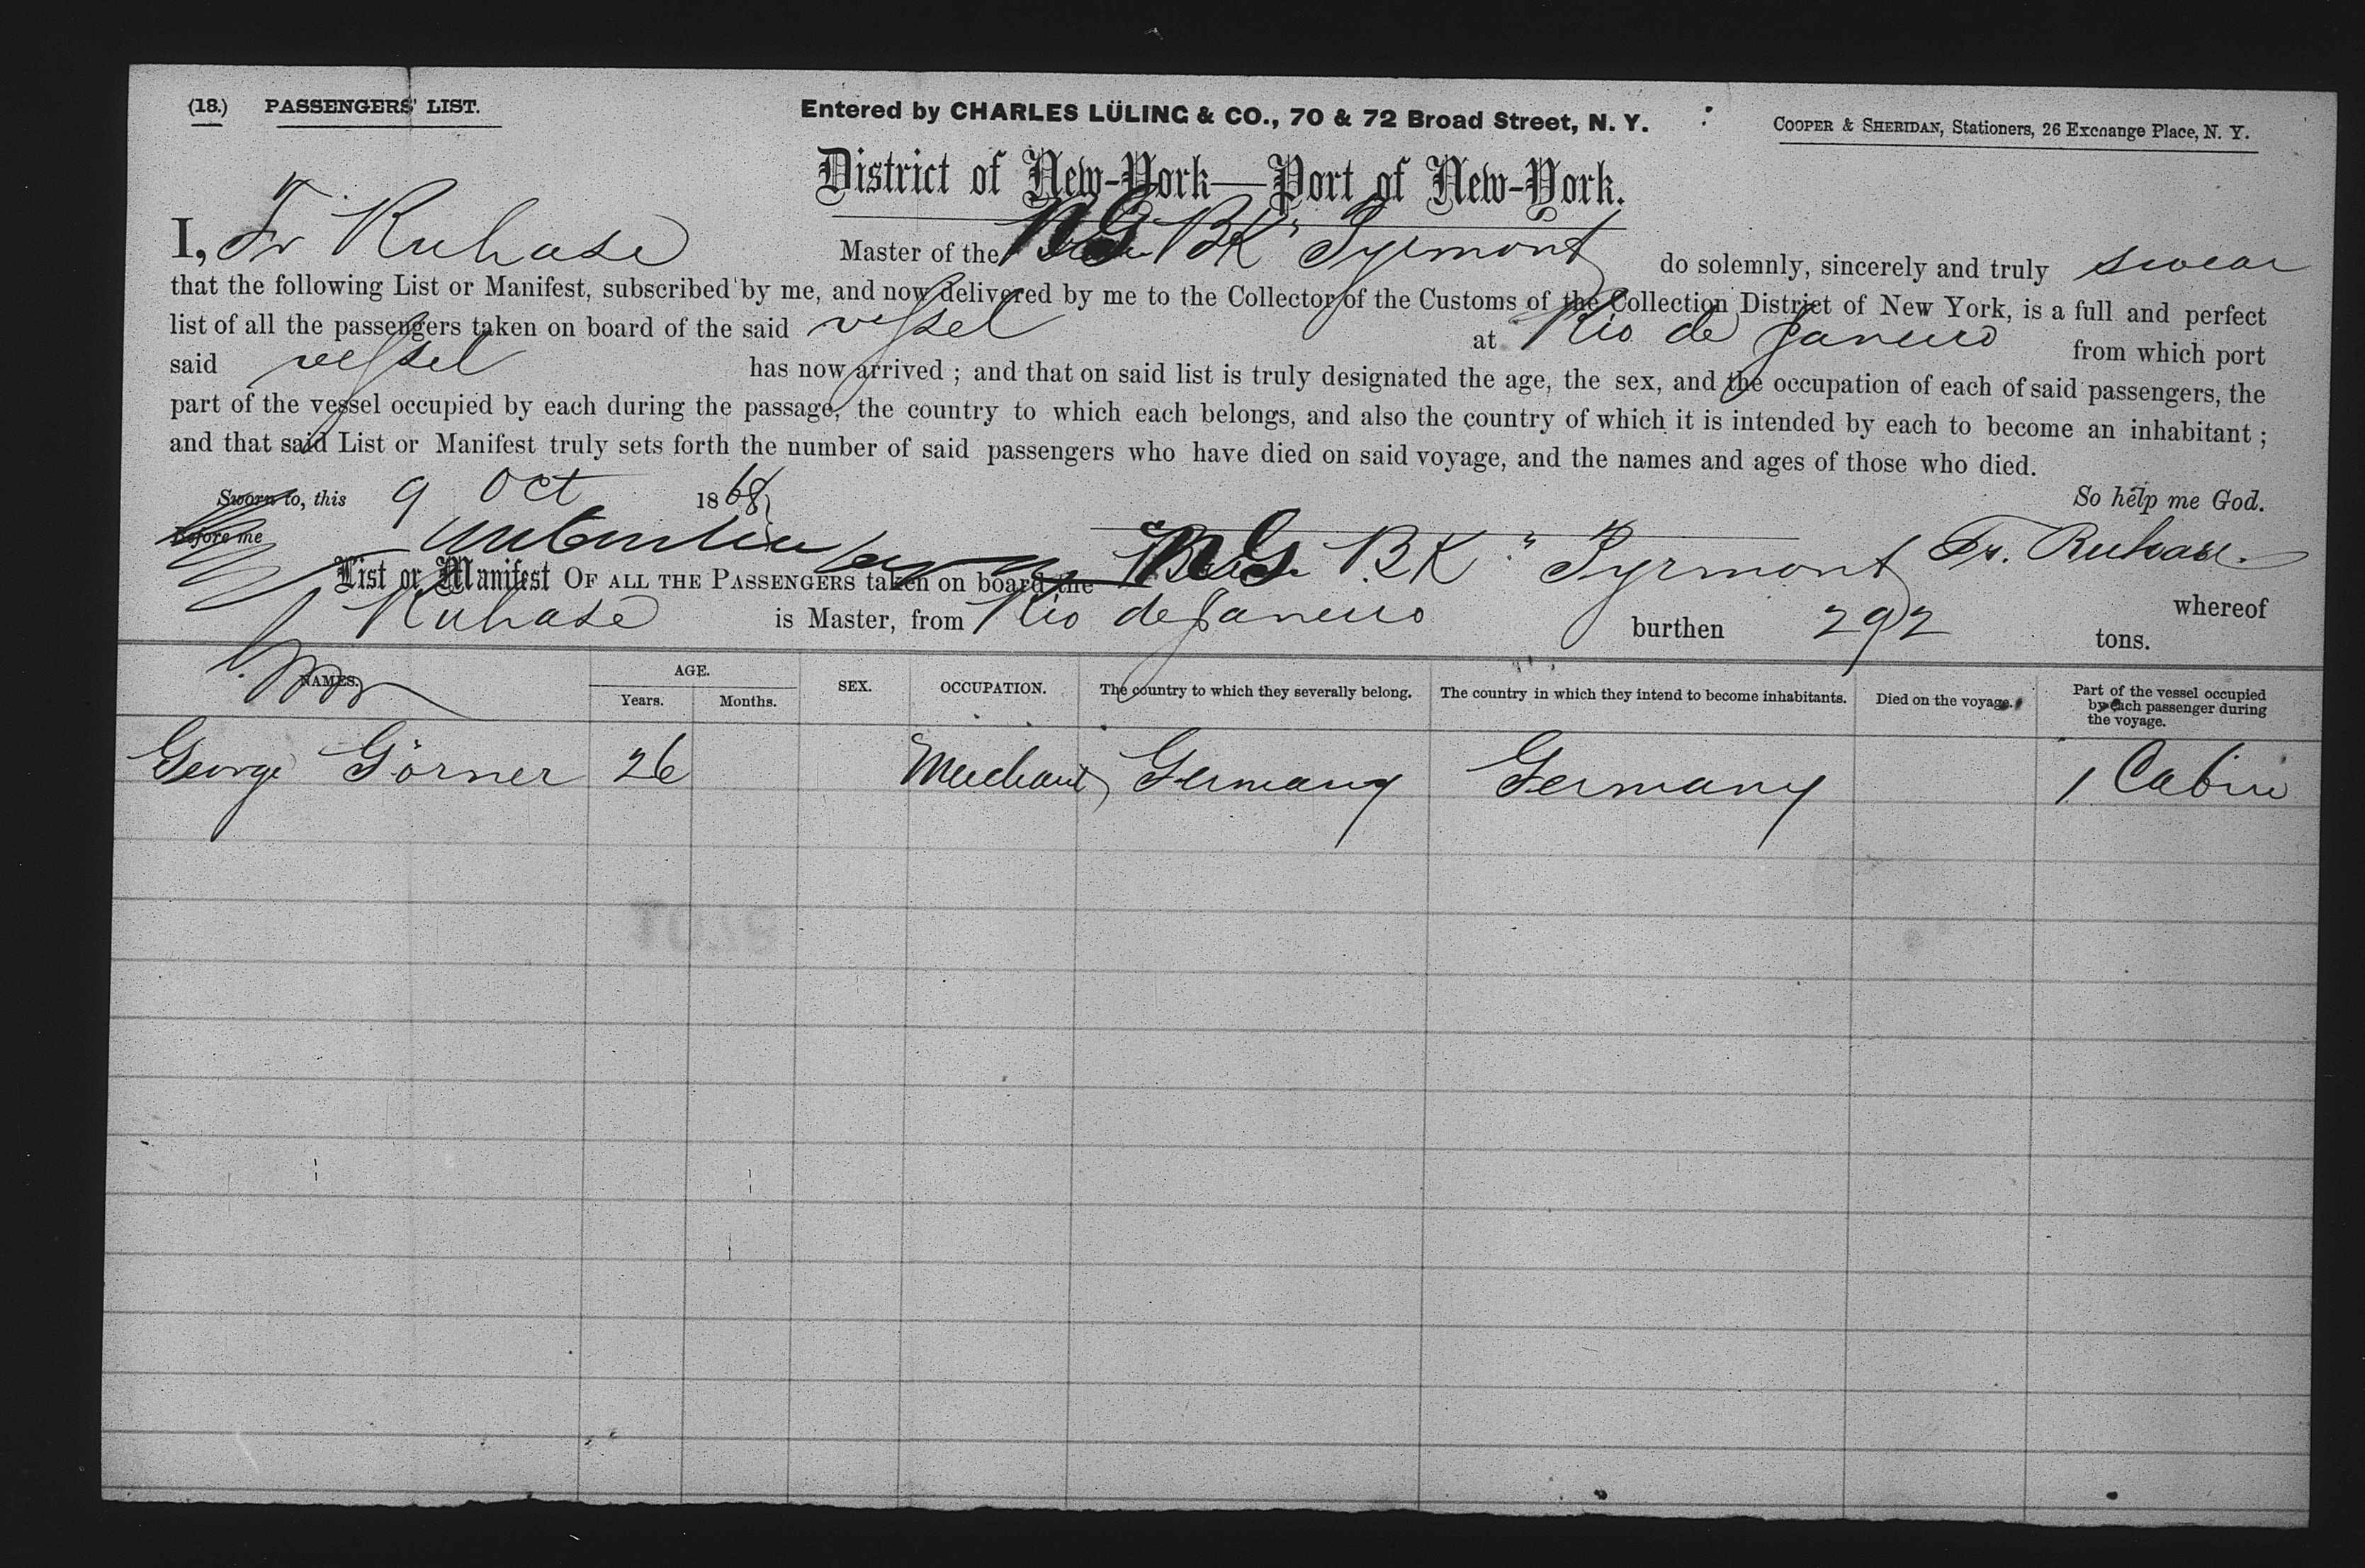 (18.) PASSENGERS' LIST.
Entered by CHARLES LÜLING & CO., 70 & 72 Broad Street, N. Y.
COOPER & SHERIDAN, Stationers, 26 Exchange Place, N. Y.
District of New-York—Port of New-York.
I, Fr Ruhase Master of the NG BK "Pyrmont do solemnly, sincerely and truly swear
that the following List or Manifest, subscribed by me, and now delivered by me to the Collector of the Customs of the Collection District of New York, is a full and perfect
list of all the passengers taken on board of the said vessel at Rio de Janeiro from which port
said vessel has now arrived ; and that on said list is truly designated the age, the sex, and the occupation of each of said passengers, the
part of the vessel occupied by each during the passage, the country to which each belongs, and also the country of which it is intended by each to become an inhabitant ;
and that said List or Manifest truly sets forth the number of said passengers who have died on said voyage, and the names and ages of those who died.
Sworn to, this 9 Oct 1868 So help me God.
Before me Fr. Ruhase.
List or Manifest OF ALL THE PASSENGERS taken on board the NG BK "Pyrmont whereof
Ruhase is Master, from Rio de Janeiro burthen 292 tons.
NAMES. AGE. Years. Months. SEX. OCCUPATION. The country to which they severally belong. The country in which they intend to become inhabitants. Died on the voyage. Part of the vessel occupied by each passenger during the voyage.
George Görner 26 Merchant Germany Germany 1 Cabin